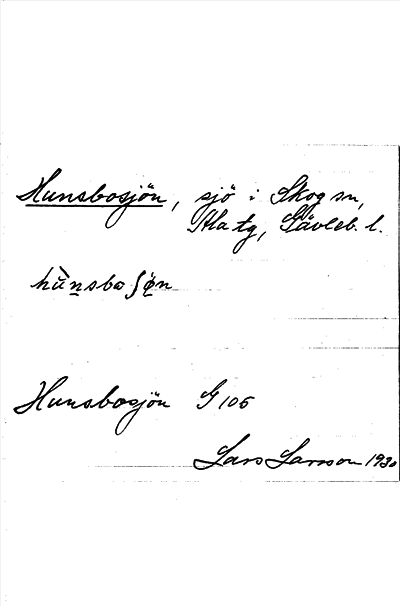 Hunsbosjön, sjö i Skog sn,
Ala tg, Gävleb. l.
hùnsbo ʃøn
Hunsbosjön G 105
Lars Larsson 1930